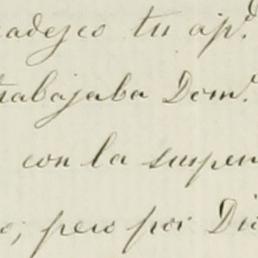 radezco tu ap.
trabajaba Dom.
con la suspen
o, pero por Dio